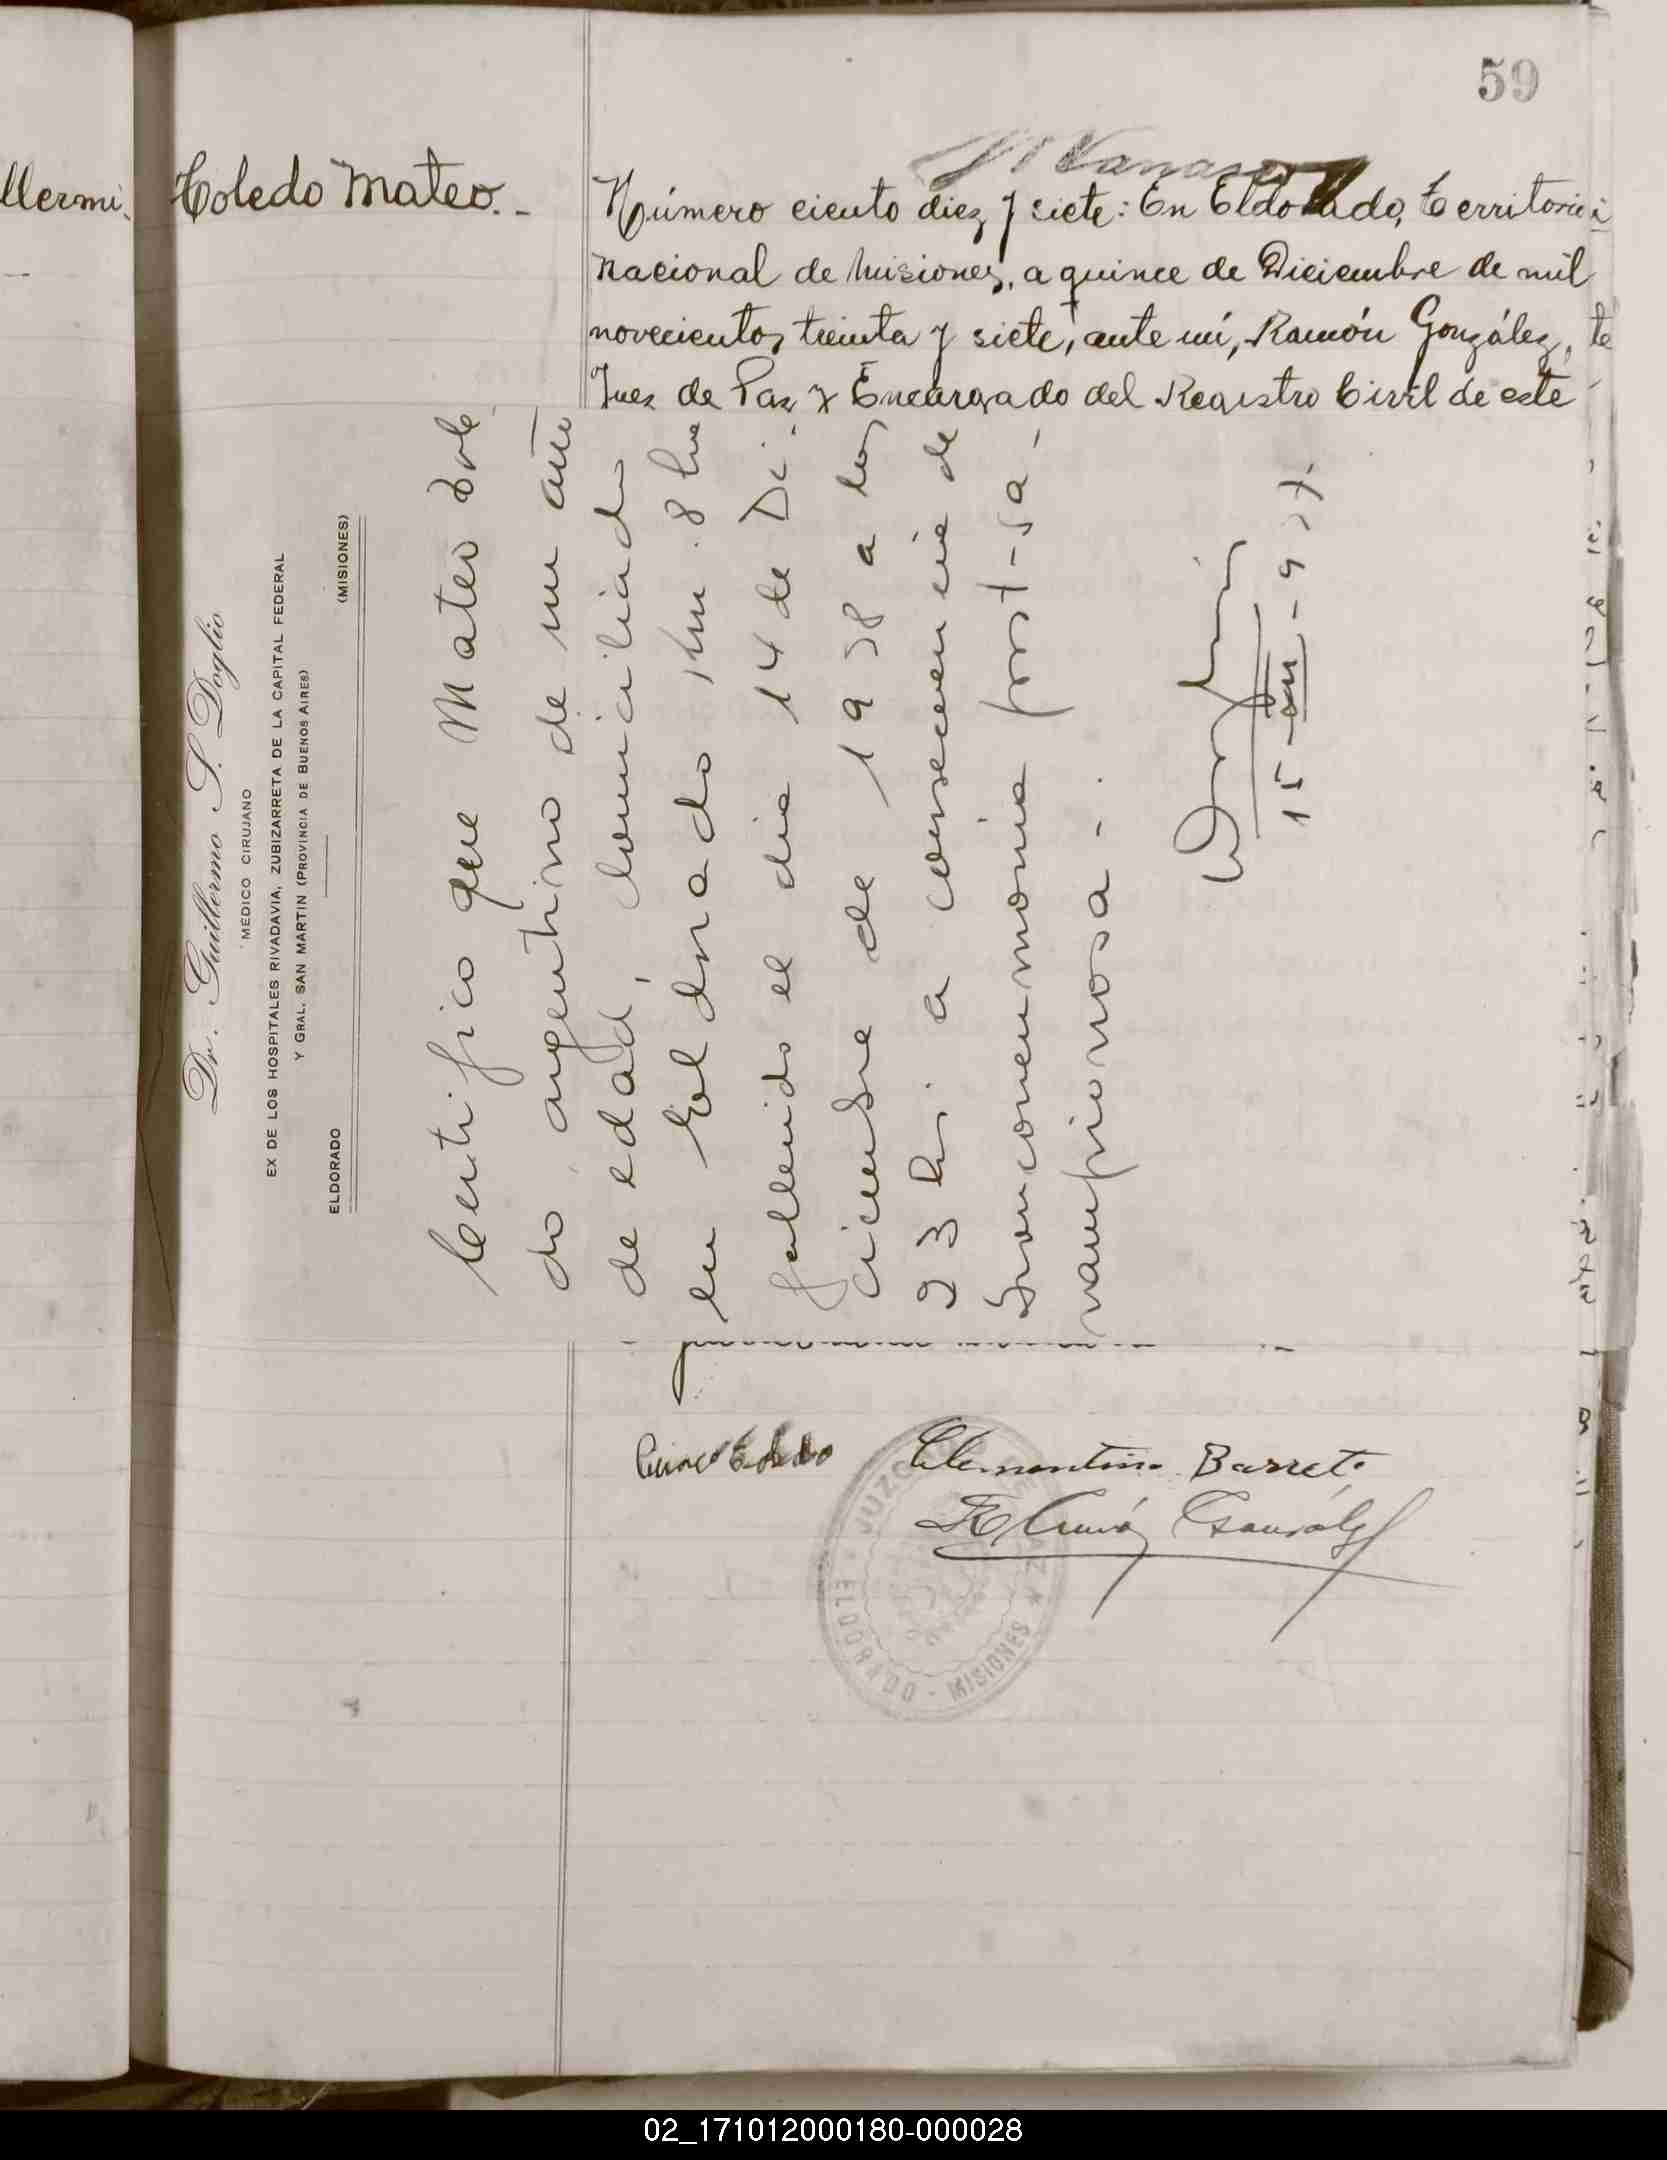 59
llermi.
Toledo Mateo.-
Número ciento diez y siete: En Eldorado, Territorio
Nacional de Misiones, a quince de Diciembre de mil
novecientos treinta y siete, ante mí, Ramón González,
Juez de Paz y Encargado del Registro Civil de este
Dr. Guillermo S. Doglio
MEDICO CIRUJANO
EX DE LOS HOSPITALES RIVADAVIA, ZUBIZARRETA DE LA CAPITAL FEDERAL
Y GRAL. SAN MARTIN (PROVINCIA DE BUENOS AIRES)
ELDORADO (MISIONES)
Certifico que Mateo Tole
do, argentino de un año
de edad, domiciliado
en Eldorado Km. 8 ha
fallecido el dia 14 de Di-
ciembre de 1938 a las
23 hs. a consecuencia de
bronconeumonia post-sa-
rampionosa -.
15-XII-937.
Toledo
Clementino Barreto
Ramón González
JUZGADO DE PAZ
ELDORADO - MISIONES
02_171012000180-000028